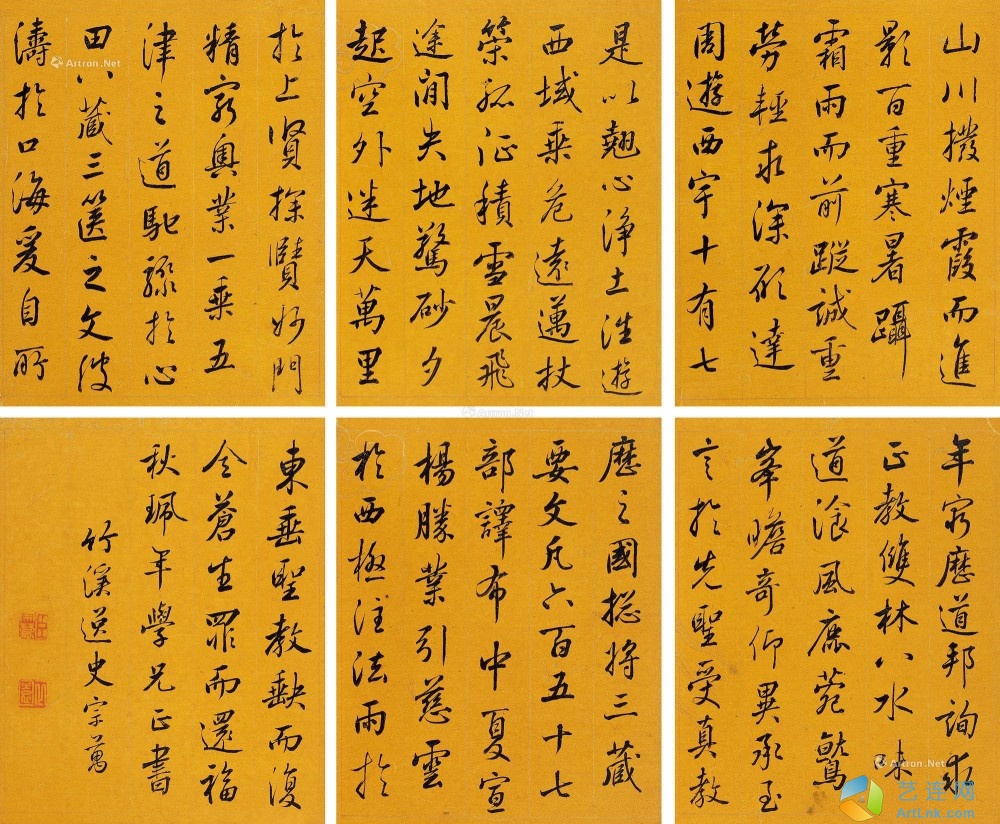 山川撥煙霞而進
影百重寒暑躡
霜雨而前蹤誠重
勞輕求深願達
周遊西宇十有七
是以翹心淨土往遊
西域乘危遠邁杖
策孤征積雪晨飛
途間失地驚砂夕
起空外迷天萬里
於上賢探賾妙門
精窮奧業一乘五
律之道馳驟於心
田八藏三篋之文波
濤於口海爰自所
年窮歷道邦詢求
正教雙林八水味
道飡風鹿菀鷲
峯瞻奇仰異承至
言於先聖受真教
歷之國捴將三藏
要文凡六百五十七
部譯布中夏宣
揚勝業引慈雲
於西極注法雨於
東垂聖教缺而復
全蒼生罪而還福
秋珮年學兄正書
竹溪逸史宗萬
Artron.Net
Artron.Net
Artron.Net
艺连网
ArtLnk.com